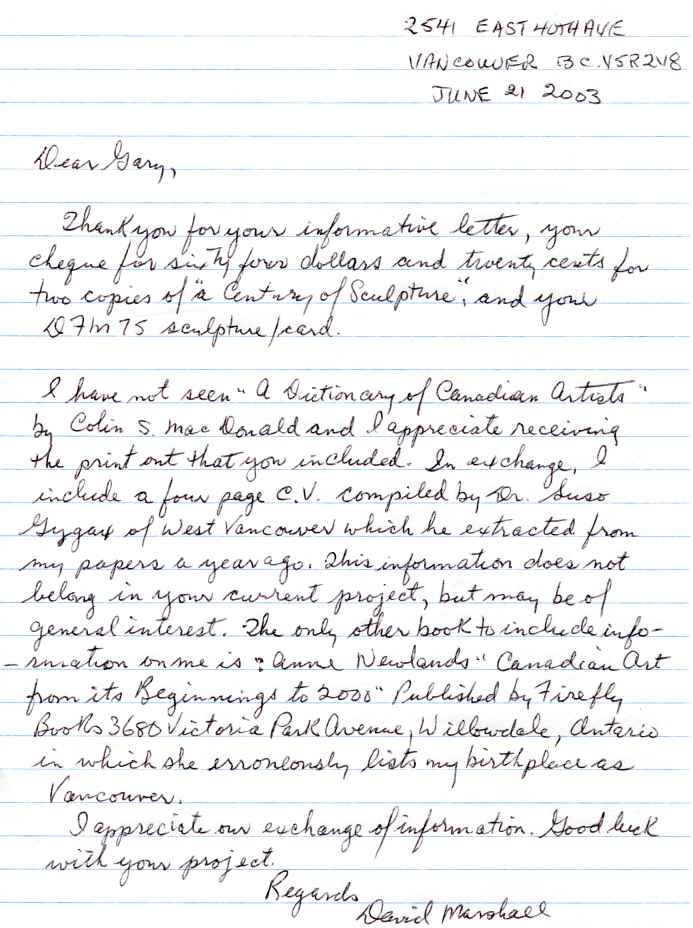 2541 EAST 40TH AVE
VANCOUVER B C. V5R2V8
JUNE 21 2003
Dear Gary,
Thank you for your informative letter, your
cheque for sixty four dollars and twenty cents for
two copies of "a Century of Sculpture", and your
sculpture/card.
I have not seen "A Dictionary of Canadian Artists"
by Colin S. MacDonald and I appreciate receiving
the print out that you included. In exchange, I
include a four page C.V. compiled by Dr. Suso
Gygax of West Vancouver which he extracted from
my papers a year ago. This information does not
belong in your current project, but may be of
general interest. The only other book to include info-
-rmation on me is: Anne Newlands "Canadian Art
from its Beginnings to 2000" Published by Firefly
Books 3680 Victoria Park Avenue, Willowdale, Ontario
in which she erroneously lists my birthplace as
Vancouver.
I appreciate our exchange of information. Good luck
with your project.
Regards
David Marshall